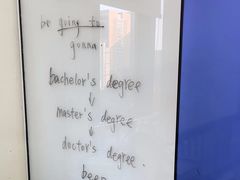 be going to
gonna.
bachelor's degree
↓
master's degree
↓
doctor's degree.
been